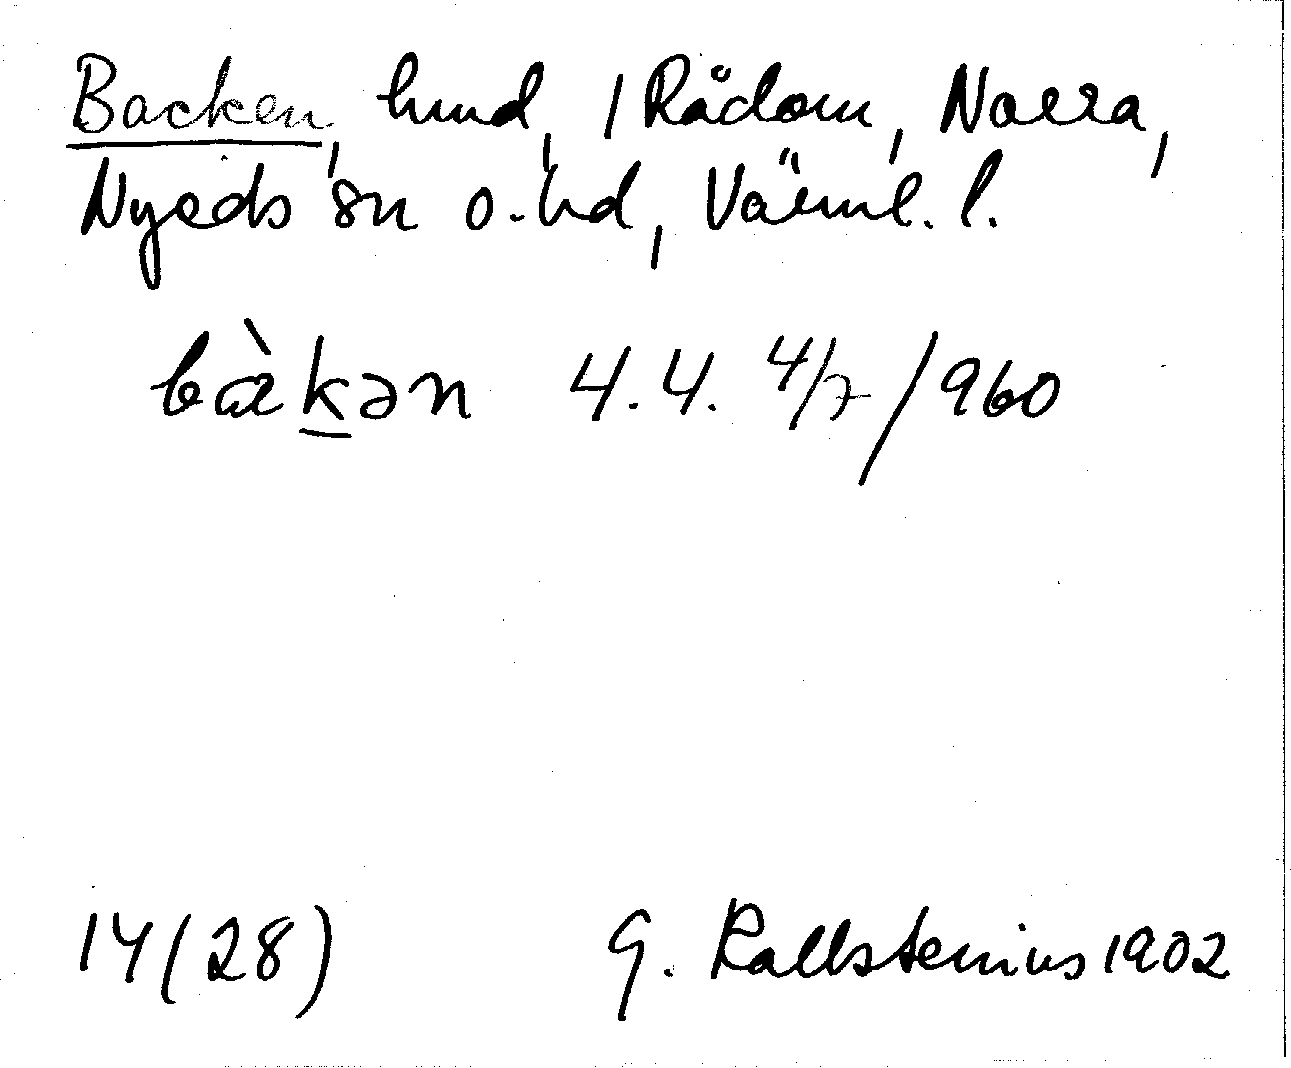 Backen, hmd, i Rådom, Norra,
Nyeds sn o. hd, Värml. l.
bàk̲ən 4.4. 4/7/960
14(28) G. Kallstenius 1902